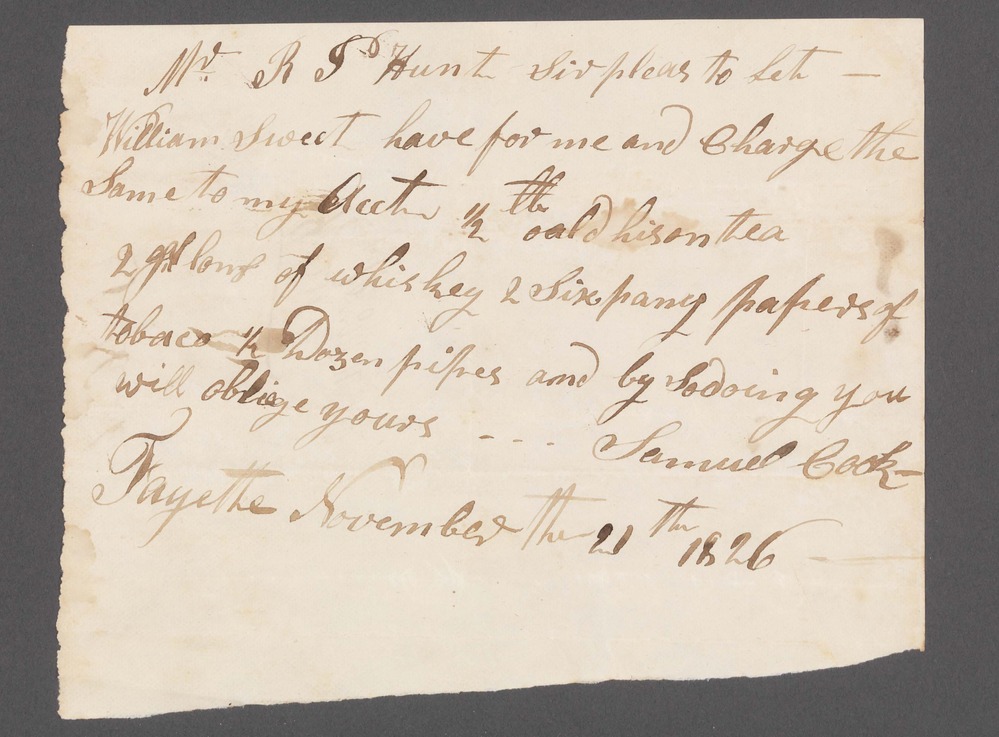 Mr. R P Hunt Sir pleas to let —
William Sweet have for me and Charge the
Same to my Acct 1/2 lb oald hison tea
2 gallons of whiskey 2 Sixpany papers of
tobaco 1/2 Dozen pipes and by Sodoing you
will oblige yours - - - Samuel Cook —
Fayette November the 21th 1826